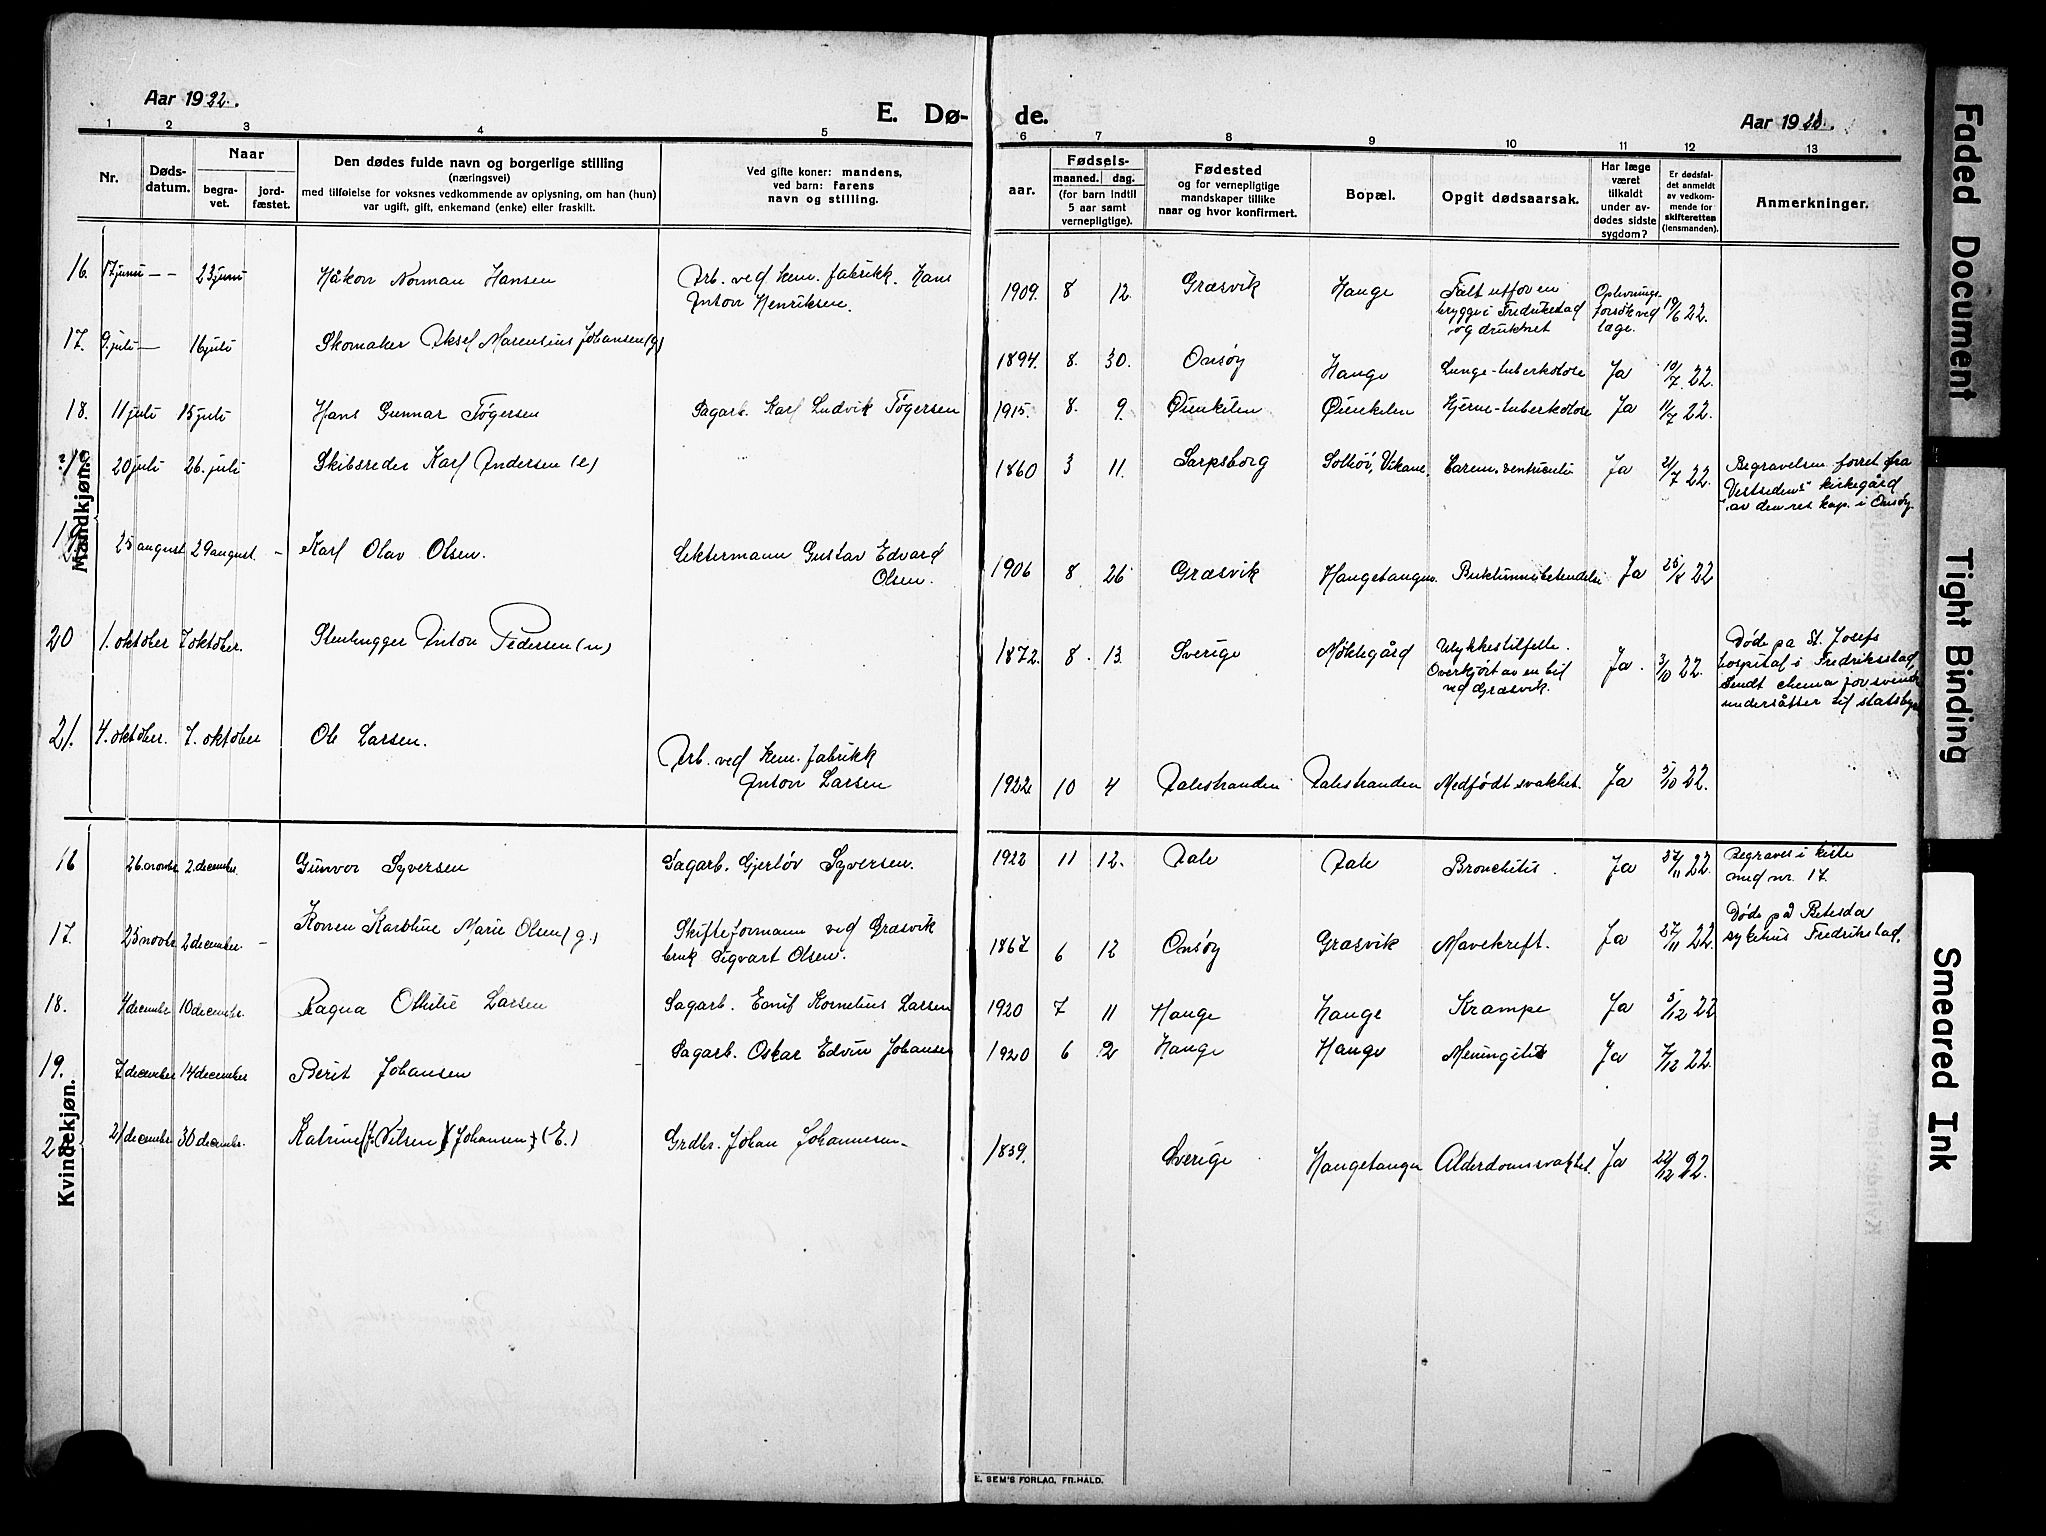 Aar 1922.
E. Dø-
de.
Aar 19
1 2 3 4 5 6 7 8 9 10 11 12 13
Nr.
Døds-
datum.
Naar
begra-
vet.
jord-
fæstet.
Den dødes fulde navn og borgerlige stilling
(næringsvei)
med tilføielse for voksnes vedkommende av oplysning, om han (hun)
var ugift, gift, enkemand (enke) eller fraskilt.
Ved gifte koner: mandens,
ved barn: farens
navn og stilling.
aar.
Fødsels-
maaned. dag.
(for barn indtil
5 aar samt
vernepligtige).
Fødested
og for vernepligtige
mandskaper tillike
naar og hvor konfirmert.
Bopæl.
Opgit dødsaarsak.
Har læge
været
tilkaldt
under av-
dødes sidste
sygdom?
Er dødsfal-
det anmeldt
av vedkom-
mende for
skifteretten
(lensmanden).
Anmerkninger.
Mandkjøn.
16. 17 juni - - 23 juni Håkon Norman Hansen Arb. ved kem. fabrikk. Hans
Anton Henriksen.
1909. 8 12. Græsvik Hauge Falt utfor en
brygge i Fredrikstad
og druknet
Oplivnings-
forsøk ved
læge.
19/6 22.
17. 9. juli - 16 juli Skomaker Aksel Marensius Johansen (g) 1894. 8. 30. Onsøy Hauge Lunge-tuberkolose Ja 10/7 22.
18. 11 juli 15 juli Hans Gunnar Tøgersen Sagarb. Karl Ludvik Tøgersen 1915. 8. 9. Øienkilen Øienkilen Hjerne-tuberkolose Ja 11/7 22.
20 juli 26. juli Skibsreder Karl Andersen (e) 1860 3 11. Sarpsborg Solhøi, Vikane. Carem. ventriculi Ja 21/7 22. Begravelsen forret fra
"Vestsidens" kirkegård
av den res kap. i Onsøy.
19. 25 august 29 august. - Karl Olav Olsen. Lektermann Gustav Edvard
Olsen.
1906 8 26 Græsvik Haugetangen. Bukhinnebetendelse Ja 22
20 1. oktober 7 oktober. Stenhugger Anton Pedersen (u) 1872. 8. 13. Sverige Møklegård Ulykkestilfelle.
Overkjørt av en bil
ved Græsvik.
Ja. 3/10 22. Døde på St. Josefs
hospital i Fredriksstad,
Sendt chema for svenske
undersåtter til statsby
21. 4. oktober. 7. oktober Ole Larsen. Arb. ved kem. fabrikk
Anton Larsen
1922 10 4 Dalestranden Dalestranden Medfødt svakhet. Ja 5/10 22.
Kvindekjøn.
16 26. novbr. 2. decembr. Gunvor Syversen Sagarb. Gjerløv Syversen. 1922 11 12. Dale Dale Bronchitis. Ja 27/11 22. Begraves i kiste
med nr. 17.
17. 25 novbr. 2 decembr. - Karen Karoline Marie Olsen (g.) Skifteformann ved Græsvik
bruk Sigvart Olsen.
1867 6 12 Onsøy Græsvik Mavekreft. Ja 27/11 22. Døde på Betesda
sykehus Fredrikstad.
18. 4 decembr. 10 decembr. Ragna Othilie Larsen Sagarb. Emil Kornelius Larsen 1920 7 11 Hauge Hauge Krampe Ja 5/12 22
19. 7 december 14 december Berit Johansen - Sagarb. Oskar Edvin Johansen 1920 6 2 Hauge Hauge Meningitis Ja 7/12 22.
21 decembr. 30 decembr. Katrine (f. Nilsen) (Johansen) (E.) Grdbr. Johan Johannesen- 1839. Sverige Haugetangen Alderdomssvakhet. Ja 22/12 22.
E. SEM'S FORLAG, FR.HALD.
Faded Document
Tight Binding
Smeared Ink